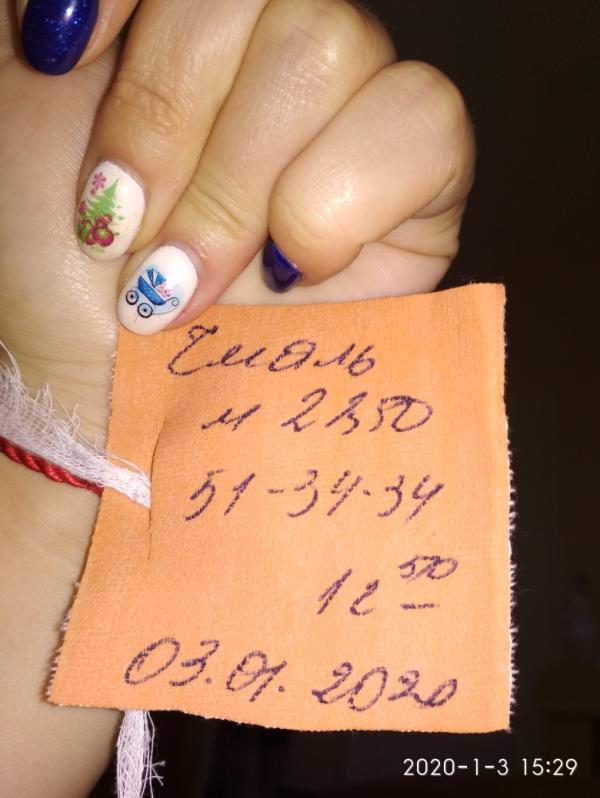 Чмаль
м 2350
51-34-34
12 50
03.01.2020
2020-1-3 15:29